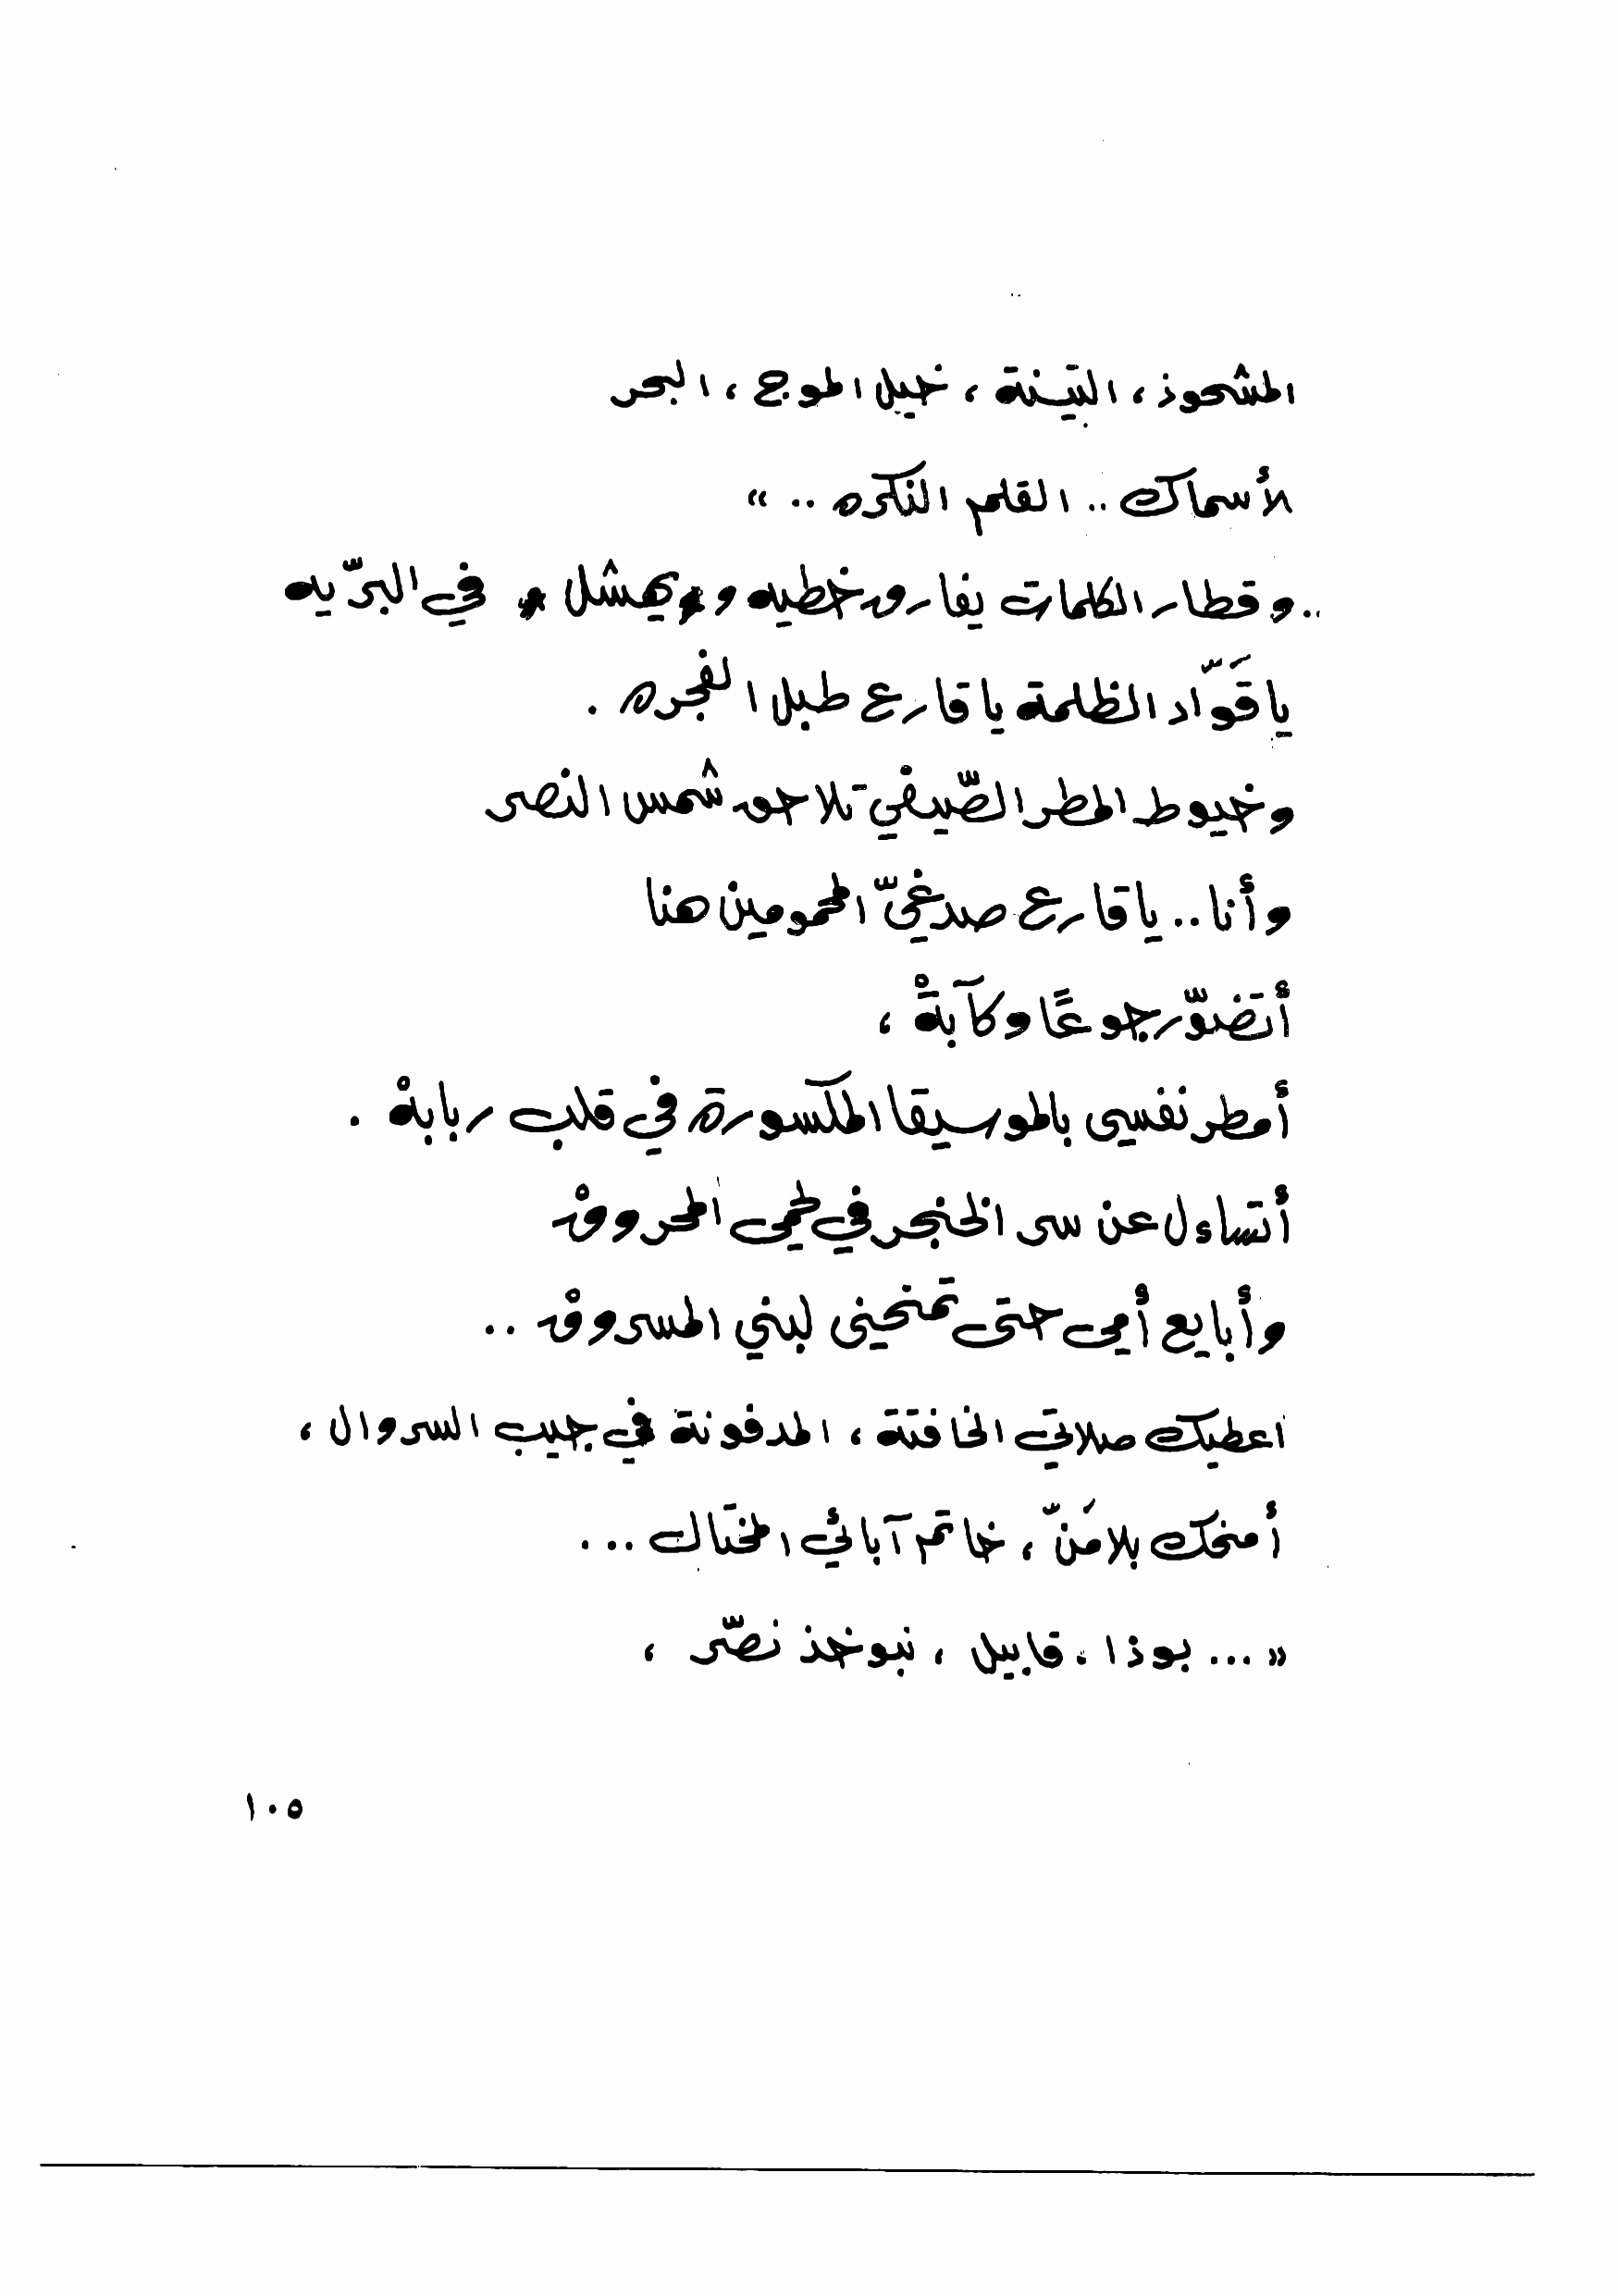 المشحوذ ، التيّنة ، خيل الموج ، البحر
لأسماك .. القلم النكره .. »
.. وقطار الكلمات يفارق خطيه ويهشل * في البرّيه
ياقَوّاد الظلمة ياقارع طبل الفجره .
وخيوط المطر الصّيفي تلاحق شمس النصر
وأنا .. ياقارع صدغيّ المحمومين هنا
أتَضَوّر جوعًا وكآبةْ ،
أمطر نفسي بالموسيقا المكسورة في قلب ربابةْ .
أتساءل عن سر الخنجر في لحمي المحروقْ
وأبايع أمي حتى تمنحني لبني المسروقْ ..
اعطيك صلاتي الخافتة ، المدفونة في جيب السروال ،
أمنحك بلا مَنّ ، خاتم آبائي المختال ...
« ... بوذا ، قابيل ، نبوخذ نصّر ،
١٠٥